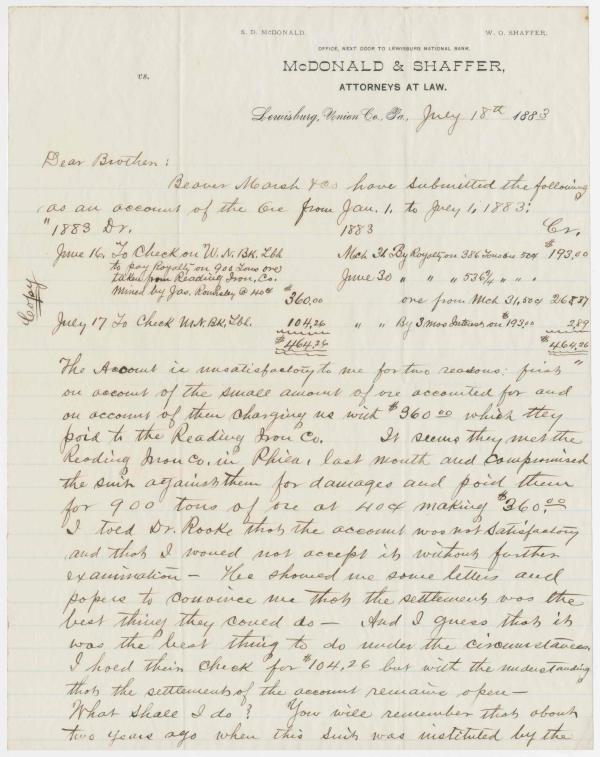 S. D. McDONALD. W. O. SHAFFER.
OFFICE, NEXT DOOR TO LEWISBURG NATIONAL BANK.
vs. McDONALD & SHAFFER,
ATTORNEYS AT LAW.
Lewisburg, Union Co., Pa., July 18th 1883
Dear Brother:
Beaver Marsh & Co have submitted the following
as an account of the Ore from Jan. 1. to July 1, 1883:
"1883 Dr. 1883 Cr.
June 16, To Check on W. N. BK. Lbh Mch 31 By Royalty on 386 Tons ore 50¢ $193.00
to pay Royalty on 900 Tons ore June 30 " " " 536¼ " " "
taken from Reading Iron, Co.
Mined by Jas. @ 40¢ $360.00 ore from Mch 31, 50¢ 268.87
July 17 To Check U. N. BK, Lbh. 104.26 " " By 3 mos Interest on $193.00 2.89
$464.26 $464.26
Copy
The Account is unsatisfactory to me for two reasons: first "
on account of the small amount of ore accounted for and
on account of their charging us with $360.00 which they
paid to the Reading Iron Co. It seems they met the
Reading Iron Co. in Phila, last month and compromised
the suit against them for damages and paid them
for 900 tons of ore at 40¢ making $360.00
I told Dr. Rooke that the account was not satisfactory
and that I would not accept it without further
examination – He showed me some letters and
papers to convince me that the settlement was the
best thing they could do – And I guess that it
was the best thing to do under the circumstances
I hold their check for $104.26 but with the understanding
that the settlement of the account remains open –
What shall I do? You will remember that about
two years ago when this suit was instituted by the